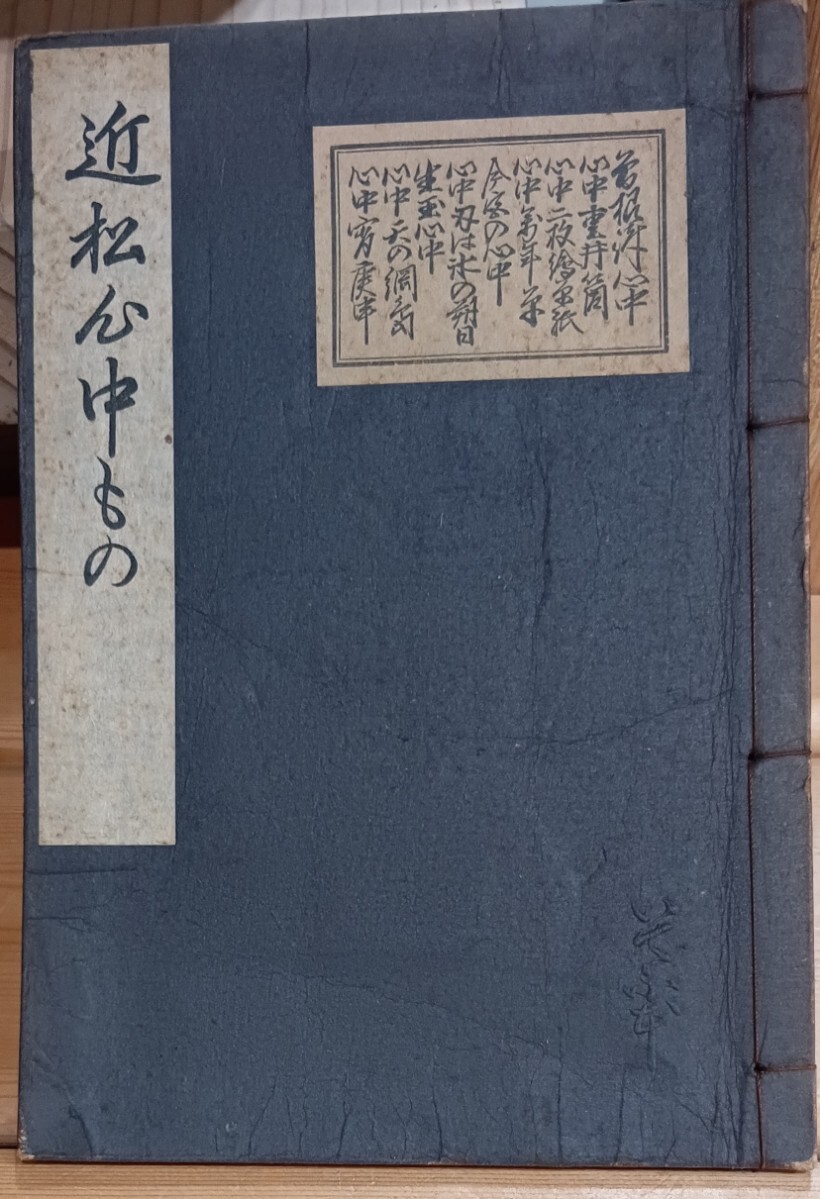 近松心中もの
曽根崎心中
心中重井筒
心中二枚繪草紙
心中萬年草
今宮の心中
心中刃は氷の朔日
生玉心中
心中天の網島
心中宵庚申